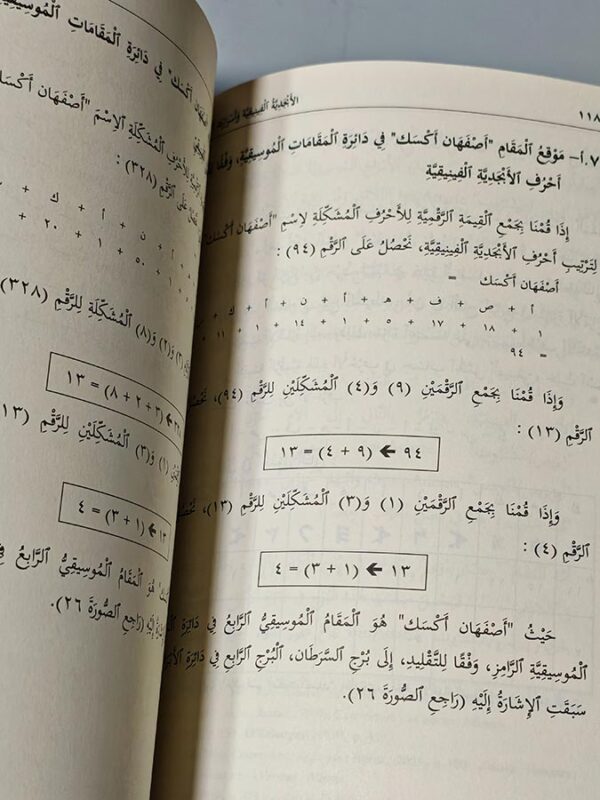 ١١٨
الأَبْجَدِيَّةُ ٱلْفِينِيقِيَّةُ
٧.أ- مَوْقِعُ ٱلْمَقَامِ "أَصْفَهَان أَكْسَك" فِي دَائِرَةِ ٱلْمَقَامَاتِ ٱلْمُوسِيقِيَّةِ، وَفْقًا
أَحْرُفِ ٱلأَبْجَدِيَّةِ ٱلْفِينِيقِيَّةِ
إِذَا قُمْنَا بِجَمْعِ ٱلْقِيمَةِ ٱلرَّقْمِيَّةِ لِلأَحْرُفِ ٱلْمُشَكِّلَةِ لاِسْمِ "أَصْفَهَان أَكْسَك"
لِتَرْتِيبِ أَحْرُفِ ٱلأَبْجَدِيَّةِ ٱلْفِينِيقِيَّةِ، نَحْصُلُ عَلَى ٱلرَّقْمِ (٩٤) :
أَصْفَهَان أَكْسَك =
أ + ص + ف + هـ + أ + ن + أ + ك +
١ + ١٨ + ١٧ + ٥ + ١ + ١٤ + ١ + ١١ +
= ٩٤
وَإِذَا قُمْنَا بِجَمْعِ ٱلرَّقْمَيْنِ (٩) وَ(٤) ٱلْمُشَكِّلَيْنِ لِلرَّقْمِ (٩٤)،
ٱلرَّقْمِ (١٣) :
٩٤ ← (٩ + ٤) = ١٣
وَإِذَا قُمْنَا بِجَمْعِ ٱلرَّقْمَيْنِ (١) وَ(٣) ٱلْمُشَكِّلَيْنِ لِلرَّقْمِ (١٣)،
ٱلرَّقْمِ (٤) :
١٣ ← (١ + ٣) = ٤
حَيْثُ "أَصْفَهَان أَكْسَك" هُوَ ٱلْمَقَامُ ٱلْمُوسِيقِيُّ ٱلرَّابِعُ فِي دَائِرَةِ
ٱلْمُوسِيقِيَّةِ ٱلرَّامِزِ، وَفْقًا لِلتَّقْلِيدِ، إِلَى بُرْجِ ٱلسَّرَطَان، ٱلْبُرْجِ ٱلرَّابِعِ فِي دَائِرَةِ
سَبَقَتِ ٱلإِشَارَةُ إِلَيْهِ (رَاجِعِ ٱلصُّورَةَ ٢٦).
أَكْسَك" فِي دَائِرَةِ ٱلْمَقَامَاتِ ٱلْمُوسِيقِيَّةِ
لِلأَحْرُفِ ٱلْمُشَكِّلَةِ لاِسْمِ "أَصْفَهَان
عَلَى ٱلرَّقْمِ (٣٢٨) :
+ أ + ن + أ + ك +
+ ١ + ٥٠ + ١ + ٢٠ +
وَ(٢) وَ(٨) ٱلْمُشَكِّلَةِ لِلرَّقْمِ (٣٢٨)
(٣ + ٢ + ٨) = ١٣
وَ(٣) ٱلْمُشَكِّلَيْنِ لِلرَّقْمِ (١٣)
١٣ ← (١ + ٣) = ٤
هُوَ ٱلْمَقَامُ ٱلْمُوسِيقِيُّ ٱلرَّابِعُ فِي
إِلَيْهِ (رَاجِعِ ٱلصُّورَةَ ٢٦).